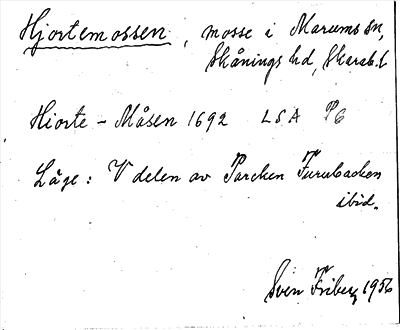 Hjortemossen, mosse i Marums sn,
Skånings hd, Skarab. l
Hiorte-Måsen 1692 LSA P6
Läge: V delen av Parcken Furubacken
ibid.
Sven Friberg 1956